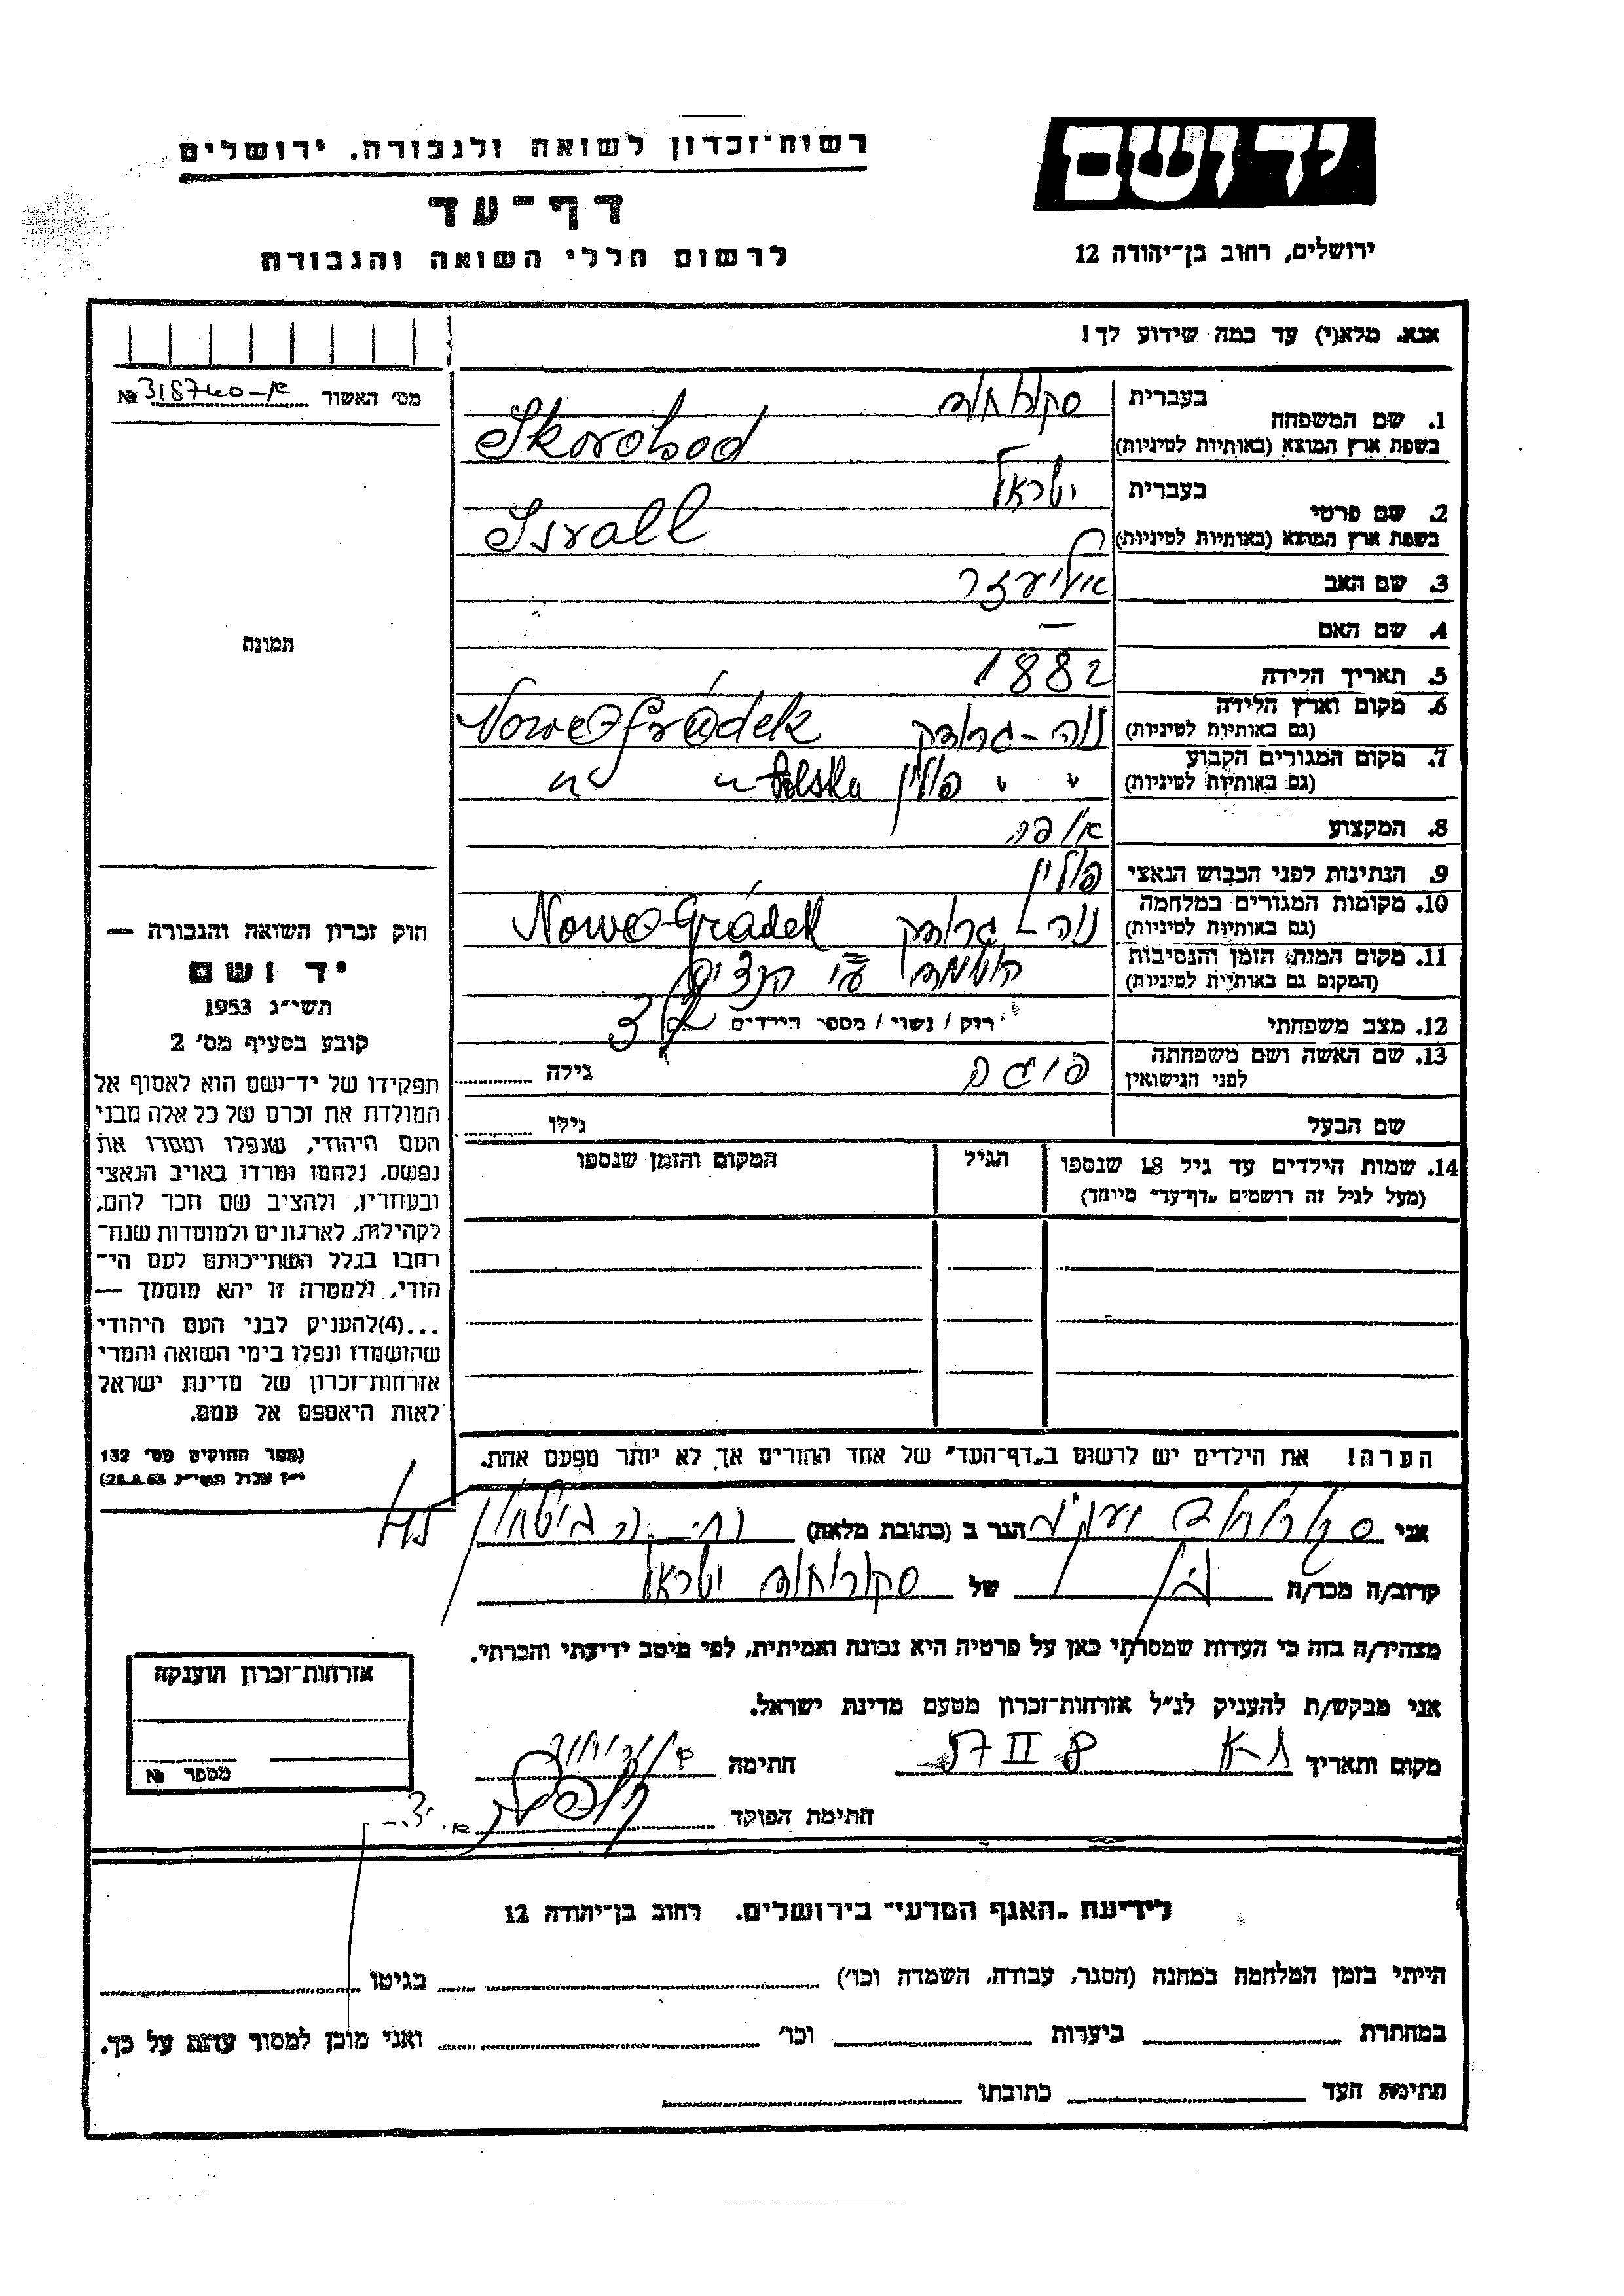 רשות־זכרון לשואה ולגבורה. ירושלים
דף־עד
לרשום חללי השואה והגבורה
יד ושם
ירושלים, רחוב בן־יהודה 12
אנא, מלא(י) עד כמה שידוע לך!
מס׳ האשור № 318740-א
1. שם המשפחה
בעברית סקורוחוד
בשפת ארץ המוצא (באותיות לטיניות) Skorohod
2. שם פרטי
בעברית ישראל
בשפת ארץ המוצא (באותיות לטיניות) Israll
3. שם האב אליעזר
4. שם האם —
5. תאריך הלידה 1882
6. מקום וארץ הלידה נוה-גרודק Nowo Gródek
(גם באותיות לטיניות)
7. מקום המגורים הקבוע " " פולין Polska " "
(גם באותיות לטיניות)
8. המקצוע אופה
9. הנתינות לפני הכבוש הנאצי פולין
10. מקומות המגורים במלחמה נוה-גרודק Nowo-Gródek
(גם באותיות לטיניות)
11. מקום המות, הזמן והנסיבות הושמד ע״י הנצים
(המקום גם באותיות לטיניות)
12. מצב משפחתי רוק / נשוי / מספר הילדים 3
13. שם האשה ושם משפחתה
לפני הנישואין גילה
שם הבעל גילו
14. שמות הילדים עד גיל 18 שנספו הגיל המקום והזמן שנספו
(מעל לגיל זה רושמים „דף־עד״ מיוחד)
הערה! את הילדים יש לרשום ב„דף־העד״ של אחד ההורים אך לא יותר מפעם אחת.
תמונה
חוק זכרון השואה והגבורה —
יד ושם
תשי״ג 1953
קובע בסעיף מס׳ 2
תפקידו של יד־ושם הוא לאסוף אל
המולדת את זכרם של כל אלה מבני
העם היהודי, שנפלו ומסרו את
נפשם, נלחמו ומרדו באויב הנאצי
ובעוזריו, ולהציב שם וזכר להם,
לקהילות, לארגונים ולמוסדות שנח־
רבו בגלל השתייכותם לעם הי־
הודי, ולמטרה זו יהא מוסמך —
...(4)להעניק לבני העם היהודי
שהושמדו ונפלו בימי השואה והמרי
אזרחות־זכרון של מדינת ישראל
לאות היאספם אל עמם.
(ספר החוקים מס׳ 132
י״ז אלול תשי״ג 28.8.53)
אני סקורוחוד יעקב הגר ב (כתובת מלאה)
קרוב/ה מכר/ה בן של סקורוחוד ישראל
מצהיר/ה בזה כי העדות שמסרתי כאן על פרטיה היא נכונה ואמיתית, לפי מיטב ידיעתי והכרתי.
אני מבקש/ת להעניק לנ״ל אזרחות־זכרון מטעם מדינת ישראל.
מקום ותאריך חתימה
חתימת הפוקד
אזרחות־זכרון הוענקה
מספר №
לידיעת „האגף המדעי״ בירושלים. רחוב בן־יהודה 12
הייתי בזמן המלחמה במחנה (הסגר, עבודה, השמדה וכו׳) בגיטו
במחתרת ביערות וכו׳ ואני מוכן למסור עדות על כך.
חתימת העד כתובתו